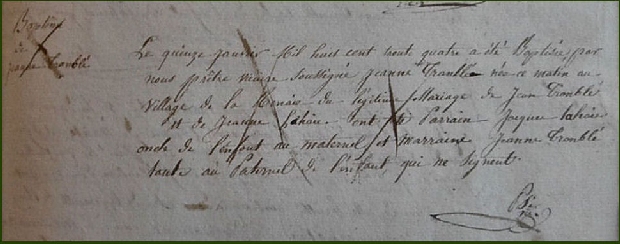 Baptême
de
jeanne Tronblé
Le quinze janvier Mil huit cent trente quatre a été Baptisée par
nous prêtre vicaire Soussigné jeanne Tronblé née ce matin au
Village de la du légitime Mariage de Jean Tronblé
et de Jeanne ont été Parrain Jacques
oncle de l'enfant au maternel et marraine Jeanne Tronblé
tante au Paternel de l'enfant, qui ne signent